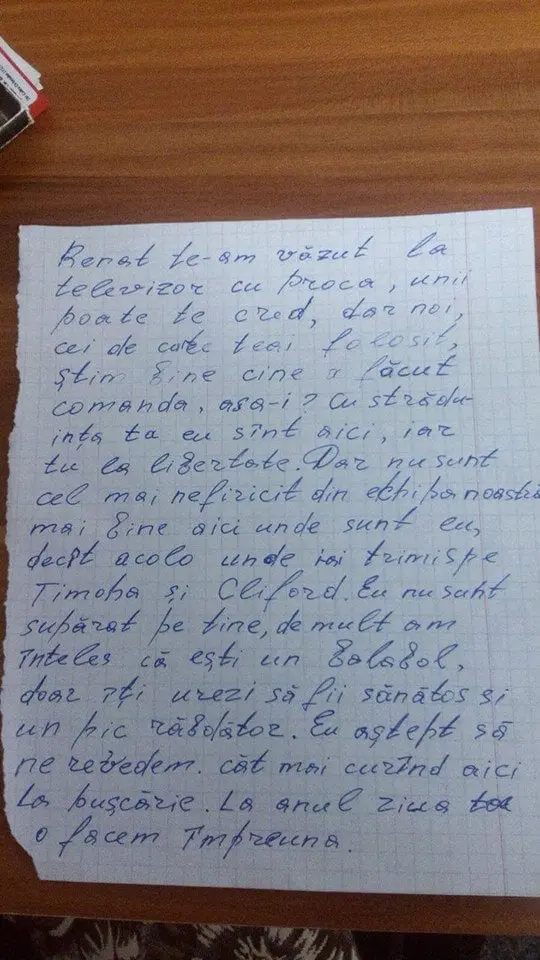 Renat te-am văzut la
televizor cu proca, unii
poate te cred, dar noi,
cei de care teai folosit,
știm bine cine a făcut
comanda, asa-i? Cu strădu-
ința ta eu sînt aici, iar
tu la libertate. Dar nu sunt
cel mai nefiricit din echipa noastră
mai bine aici unde sunt eu,
decît acolo unde iai trimis pe
Timoha și Cliford. Eu nu sunt
supărat pe tine, de mult am
înteles că ești un balabol,
doar îți urezi să fii sănătos si
un pic răbdător. Eu aștept să
ne revedem. cât mai curînd aici
La pușcărie. La anul ziua
o facem împreuna.